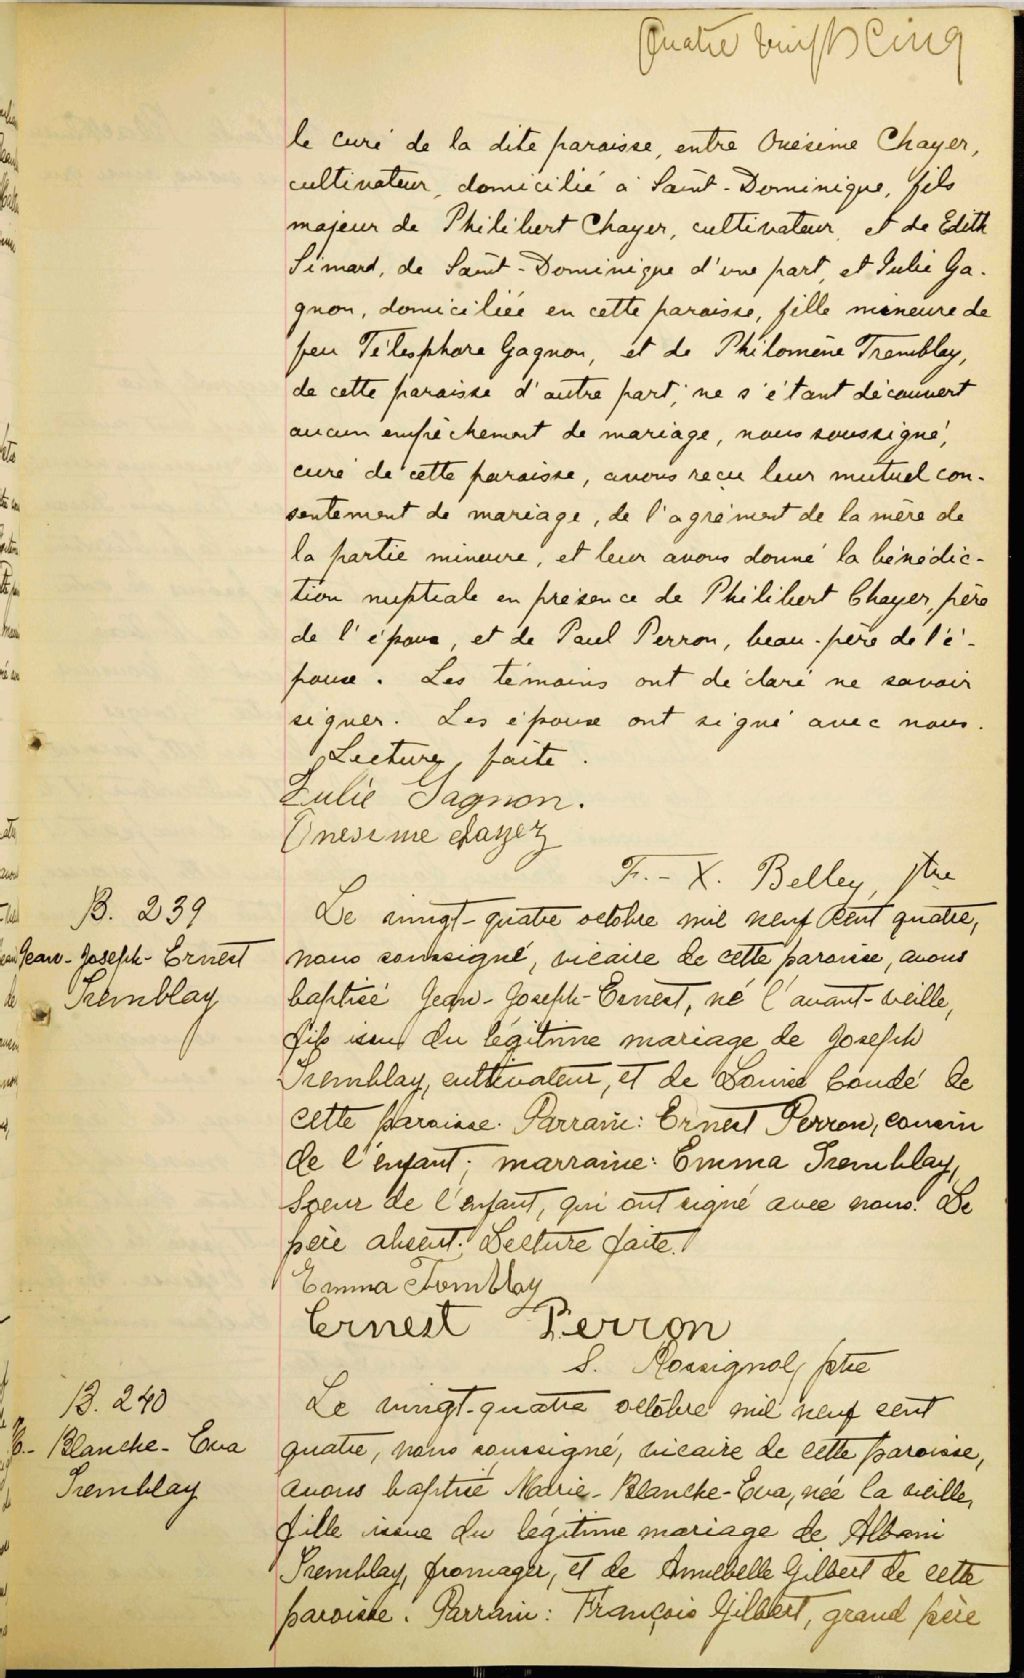 Quatre vingts Cinq
le curé de la dite paroisse, entre Onésime Chayer,
cultivateur, domicilié à Saint-Dominique, fils
majeur de Philibert Chayer, cultivateur, et de Edith
Simard, de Saint-Dominique d'une part, et Julie Ga-
gnon, domiciliée en cette paroisse, fille mineure de
feu Télesphore Gagnon, et de Philomène Tremblay,
de cette paroisse d'autre part; ne s'étant découvert
aucun empêchement de mariage, nous soussigné,
curé de cette paroisse, avons reçu leur mutuel con-
sentement de mariage, de l'agrément de la mère de
la partie mineure, et leur avons donné la bénédic-
tion nuptiale en présence de Philibert Chayer, père
de l'époux, et de Paul Perron, beau-père de l'é-
pouse. Les témoins ont déclaré ne savoir
signer. Les époux ont signé avec nous.
Lecture faite.
Julie Gagnon.
Onesime chayez
F.-X. Belley, ptre
B. 239
Jean-Joseph-Ernest
Tremblay
Le vingt-quatre octobre mil neuf cent quatre,
nous soussigné, vicaire de cette paroisse, avons
baptisé Jean-Joseph-Ernest, né l'avant-veille,
fils issu du légitime mariage de Joseph
Tremblay, cultivateur, et de Louise Coudé de
cette paroisse. Parrain: Ernest Perron, cousin
de l'enfant; marraine: Emma Tremblay,
soeur de l'enfant, qui ont signé avec nous. Le
père absent. Lecture faite.
Emma Tremblay
Ernest Perron
S. Rossignol, ptre
B. 240
Blanche-Eva
Tremblay
Le vingt-quatre octobre mil neuf cent
quatre, nous soussigné, vicaire de cette paroisse,
avons baptisé Marie-Blanche-Eva, née la veille,
fille issue du légitime mariage de Albani
Tremblay, fromager, et de Annebelle Gilbert de cette
paroisse. Parrain: François Gilbert, grand père